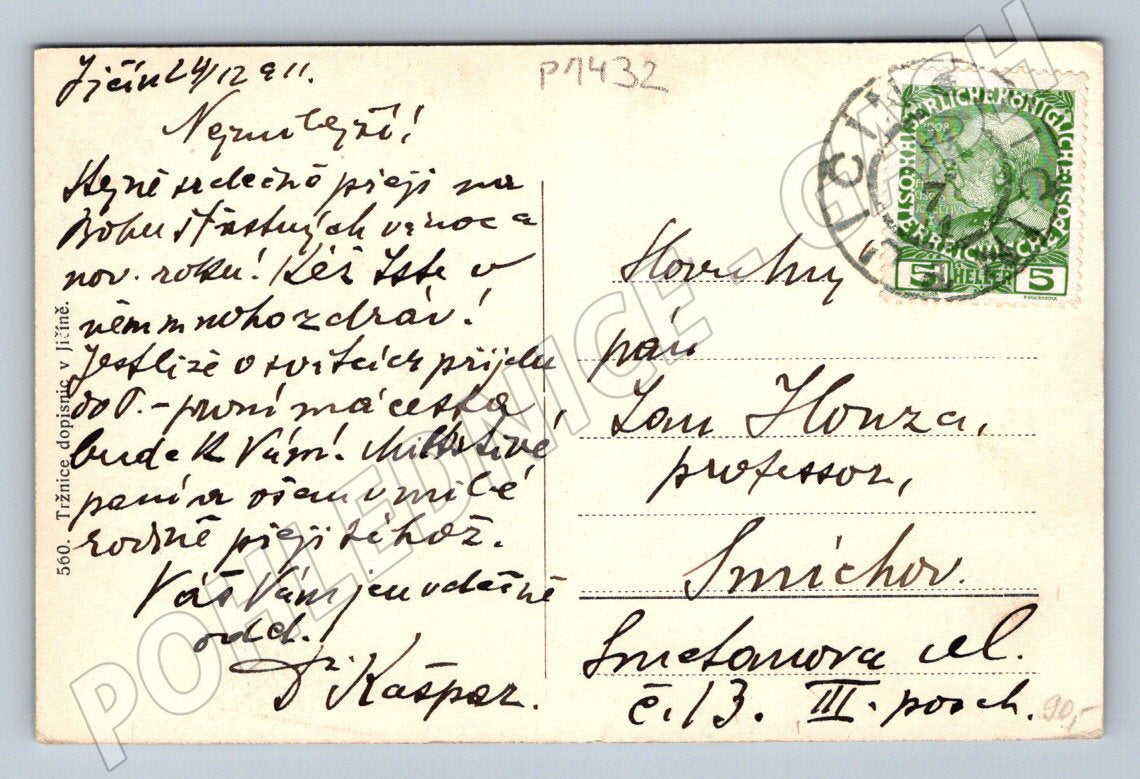 Jičín 24/12 911.
P1432
Nejmilejší!
Stejně srdečně přeji na
Bohu šťastných vánoc a
nov. roku! Kéž jste v
něm mnoho zdráv!
Jestliže o svátcích přijedu
do P. - první má cesta,
bude k Vám! Milostivé
paní a všem v milé
rodině přeji téhož.
Váš Vám jen vděčně
odd.
Dr Kašpar.
560. Tržnice dopisnic v Jičíně.
JIČÍN
KAISERLICHE KÖNIGLICHE
ÖSTERREICHISCHE POST
5 HELLER 5
Slovutný
pán
Jan Honza,
professor,
Smíchov.
Smetanova ul.
č. 13. III. posch.
90,-
POHLEDNICE - CMGH